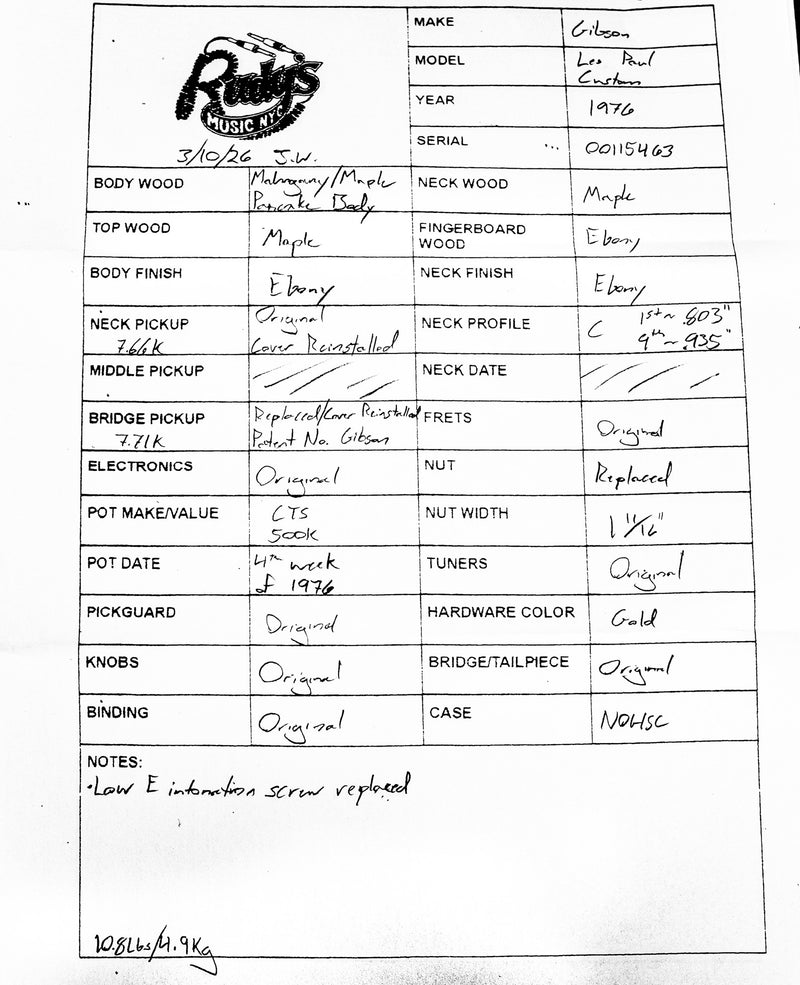 Rudy's
MUSIC NYC
3/10/26 J.W.
MAKE Gibson
MODEL Les Paul
Custom
YEAR 1976
SERIAL 00115463
BODY WOOD Mahogany/Maple
Pancake Body
NECK WOOD Maple
TOP WOOD Maple
FINGERBOARD
WOOD Ebony
BODY FINISH Ebony
NECK FINISH Ebony
NECK PICKUP Original
7.66K Cover Reinstalled
NECK PROFILE C 1st ~ .803"
9th ~ .935"
MIDDLE PICKUP
NECK DATE
BRIDGE PICKUP Replaced/Cover Reinstalled
7.71K Patent No. Gibson
FRETS Original
ELECTRONICS Original
NUT Replaced
POT MAKE/VALUE CTS
500K
NUT WIDTH 1 11/16"
POT DATE 4th week
of 1976
TUNERS Original
PICKGUARD Original
HARDWARE COLOR Gold
KNOBS Original
BRIDGE/TAILPIECE Original
BINDING Original
CASE NOHSC
NOTES:
·Low E intonation screw replaced
10.8Lbs/4.9Kg